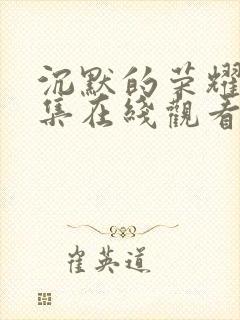 沉默的荣耀
集在綫觀看
崔英道